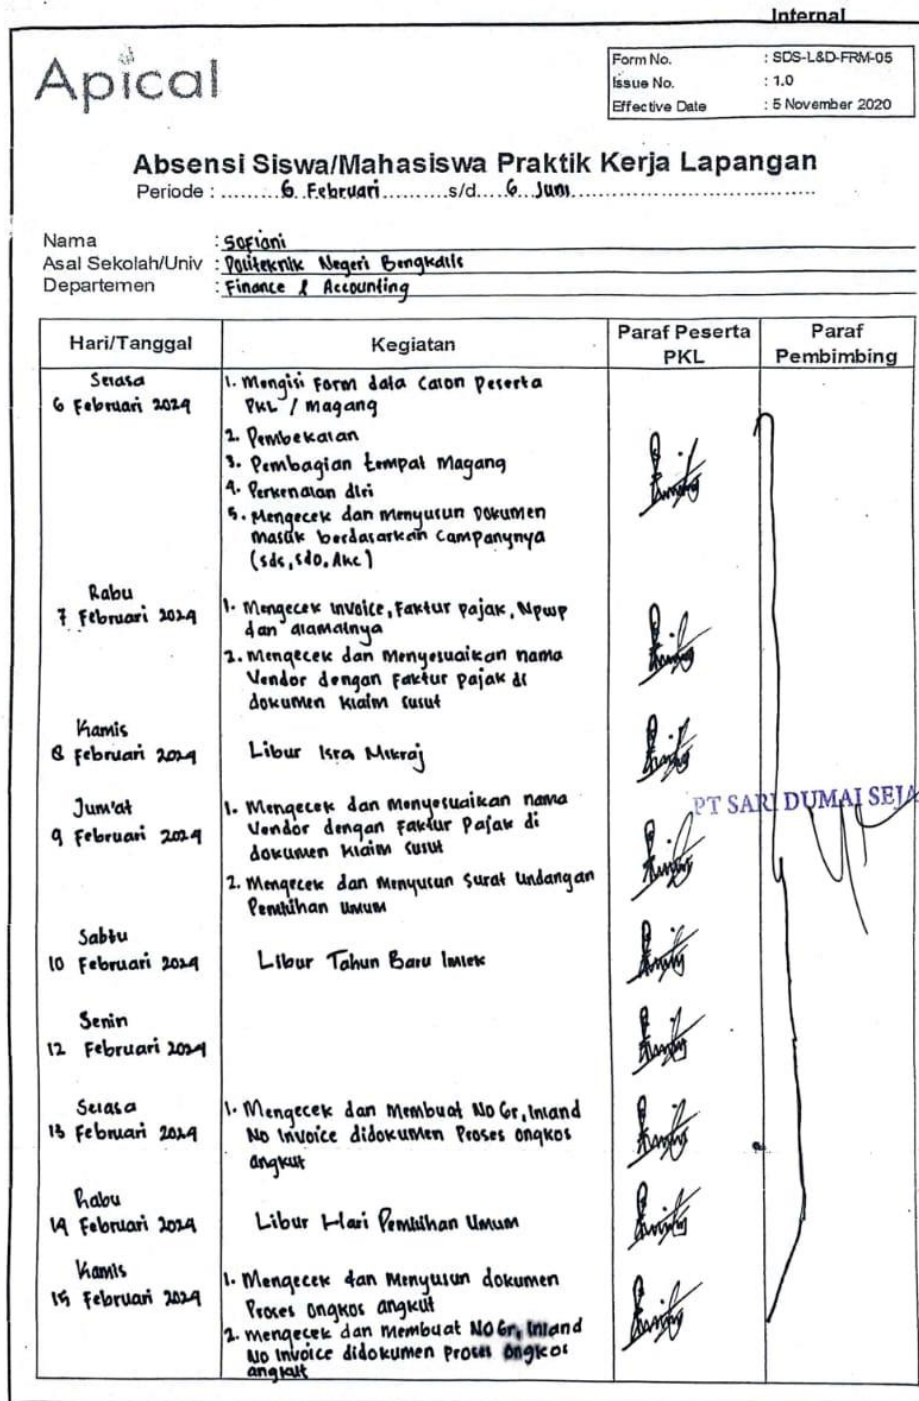 Internal
Apical
Form No. : SDS-L&D-FRM-05
Issue No. : 1.0
Effective Date : 5 November 2020
Absensi Siswa/Mahasiswa Praktik Kerja Lapangan
Periode : ......... 6 Februari ..........s/d.... 6 Juni ..................................
Nama : Sofiani
Asal Sekolah/Univ : Politeknik Negeri Bengkalis
Departemen : Finance & Accounting
Hari/Tanggal Kegiatan Paraf Peserta PKL Paraf Pembimbing
Selasa
6 Februari 2024
1. Mengisi Form data Calon Peserta
PKL / Magang
2. Pembekalan
3. Pembagian tempat Magang
4. Perkenalan diri
5. Mengecek dan menyusun Dokumen
masuk berdasarkan Campanynya
(sds, sdo, Akc)
Rabu
7 Februari 2024
1. Mengecek invoice, Faktur pajak, Npwp
dan alamatnya
2. Mengecek dan Menyesuaikan nama
Vendor dengan Faktur pajak di
dokumen klaim susut
Kamis
8 Februari 2024
Libur Isra Mikraj
Jum'at
9 Februari 2024
1. Mengecek dan Menyesuaikan nama
Vendor dengan Faktur Pajak di
dokumen klaim susut
2. Mengecek dan Menyusun Surat Undangan
Pemilihan Umum
PT SARI DUMAI SEJA
Sabtu
10 Februari 2024
Libur Tahun Baru Imlek
Senin
12 Februari 2024
Selasa
13 Februari 2024
1. Mengecek dan Membuat No Gr, Inland
No Invoice didokumen Proses ongkos
angkut
Rabu
14 Februari 2024
Libur Hari Pemilihan Umum
Kamis
15 Februari 2024
1. Mengecek dan Menyusun dokumen
Proses ongkos angkut
2. mengecek dan membuat No Gr, Inland
No Invoice didokumen proses ongkos
angkut